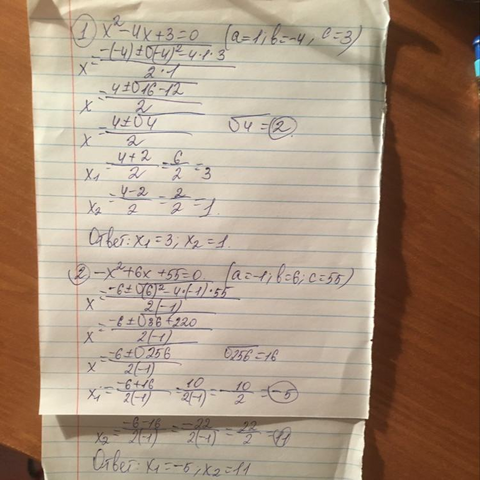 1) x²-4x+3=0 (a=1; в=-4; c=3)
x = (-(-4)±√(-4)²-4·1·3)/(2·1)
x = (4±√16-12)/2
x = (4±√4)/2 √4=2.
x₁ = (4+2)/2 = 6/2 = 3
x₂ = (4-2)/2 = 2/2 = 1.
Ответ: x₁=3; x₂=1.
2) -x²+6x+55=0 (a=-1; в=6; c=55)
x = (-6±√(6)²-4·(-1)·55)/(2(-1))
x = (-6±√36+220)/(2(-1))
x = (-6±√256)/(2(-1)) √256=16
x₁ = (-6+16)/(2(-1)) = 10/(2(-1)) = -10/2 = -5
x₂ = (-6-16)/(2(-1)) = -22/(2(-1)) = 22/2 = 11
Ответ: x₁=-5, x₂=11